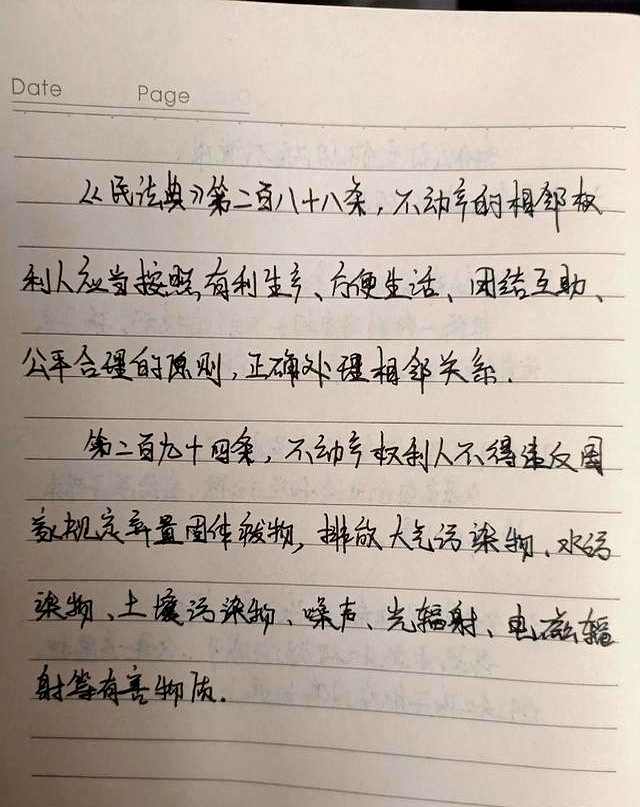 Date Page
《民法典》第二百八十八条,不动产的相邻权
利人应当按照有利生产、方便生活、团结互助、
公平合理的原则,正确处理相邻关系.
第二百九十四条,不动产权利人不得违反国
家规定弃置固体废物,排放大气污染物、水污
染物、土壤污染物、噪声、光辐射、电磁辐
射等有害物质.